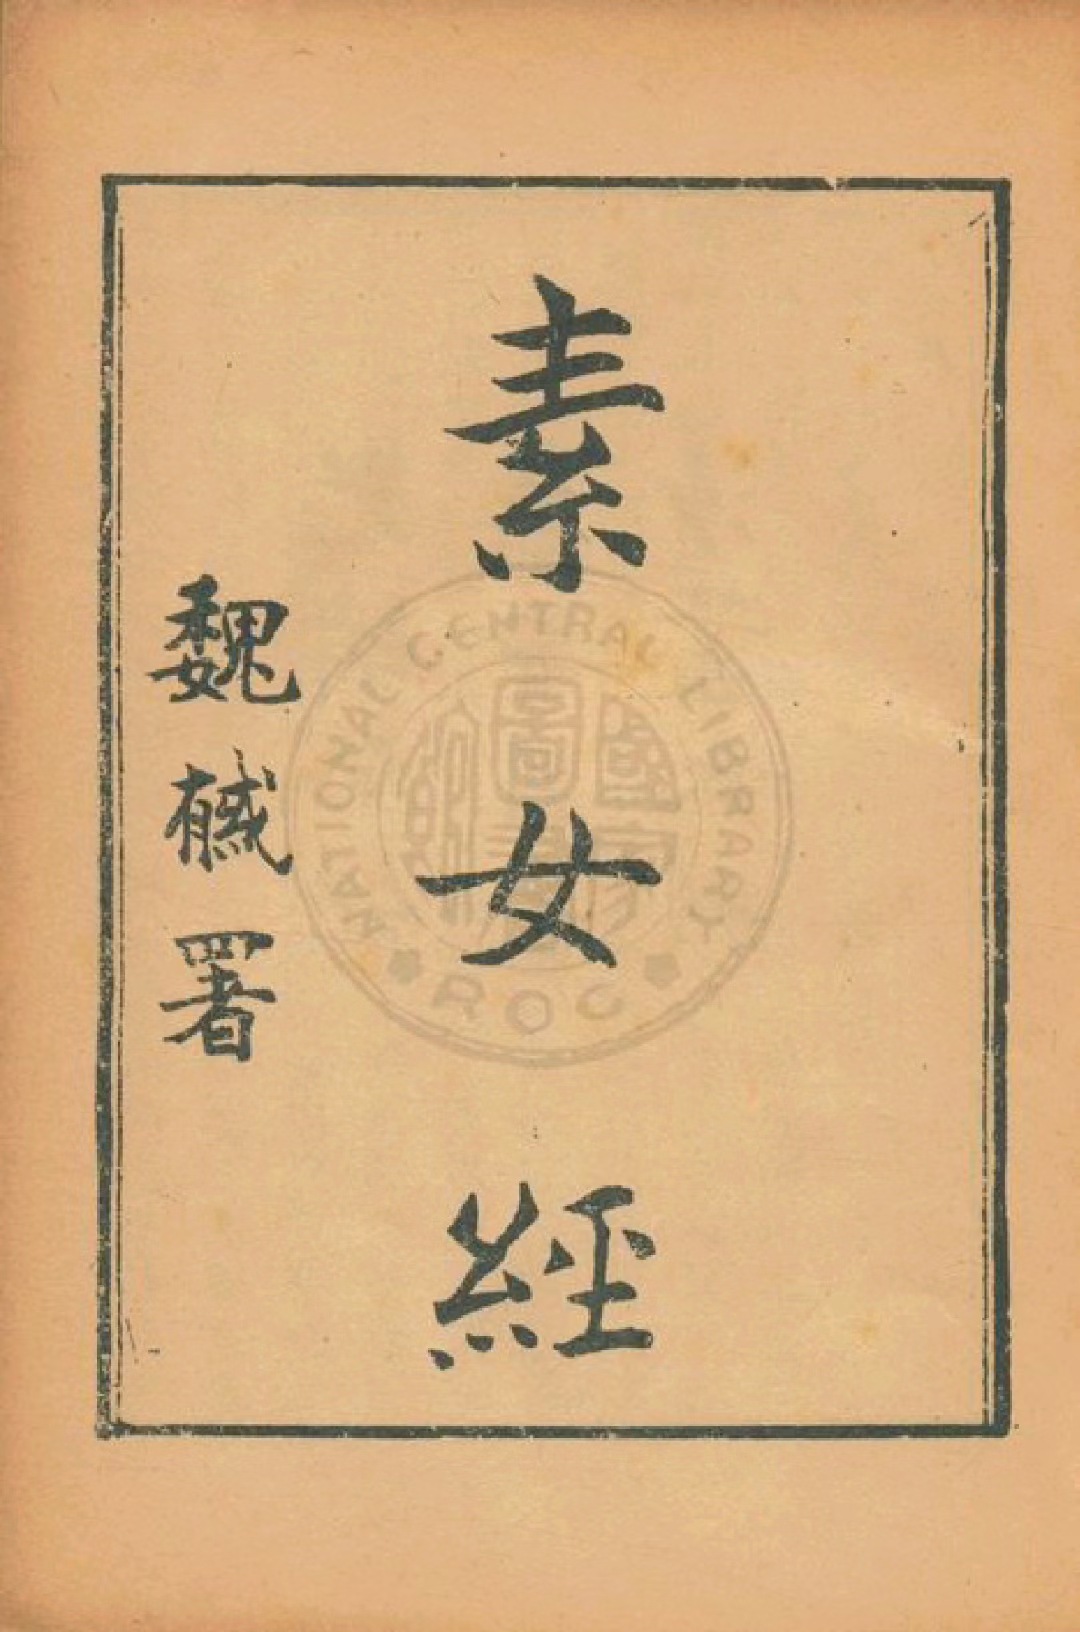 素女經
魏戫署
NATIONAL CENTRAL LIBRARY
ROC
國家
圖書
館